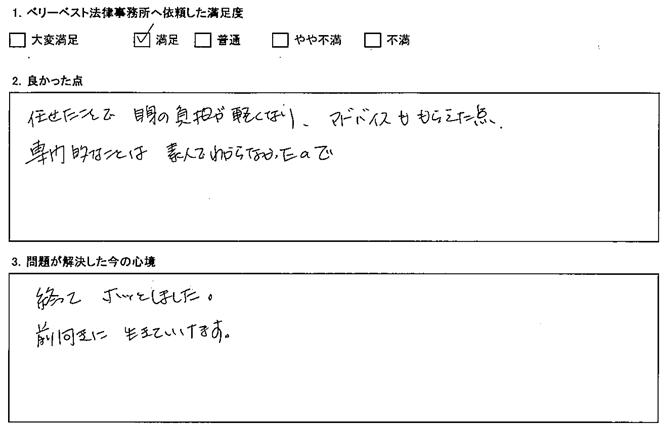 1. ベリーベスト法律事務所へ依頼した満足度
□ 大変満足 ☑ 満足 □ 普通 □ やや不満 □ 不満
2. 良かった点
任せたことで 自身の負担が軽くなり、アドバイスももらえた点、
専門的なことは 素人でわからなかったので
3. 問題が解決した今の心境
終って ホッとしました。
前向きに 生きていけます。